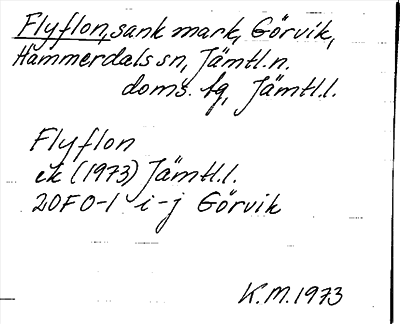 Flyflon, sank mark, Görvik,
Hammerdals sn, Jämtl.n.
doms. fg, Jämtl.l.
Flyflon
ek (1973) Jämtl.l.
20F0-1 i-j Görvik
K.M.1973